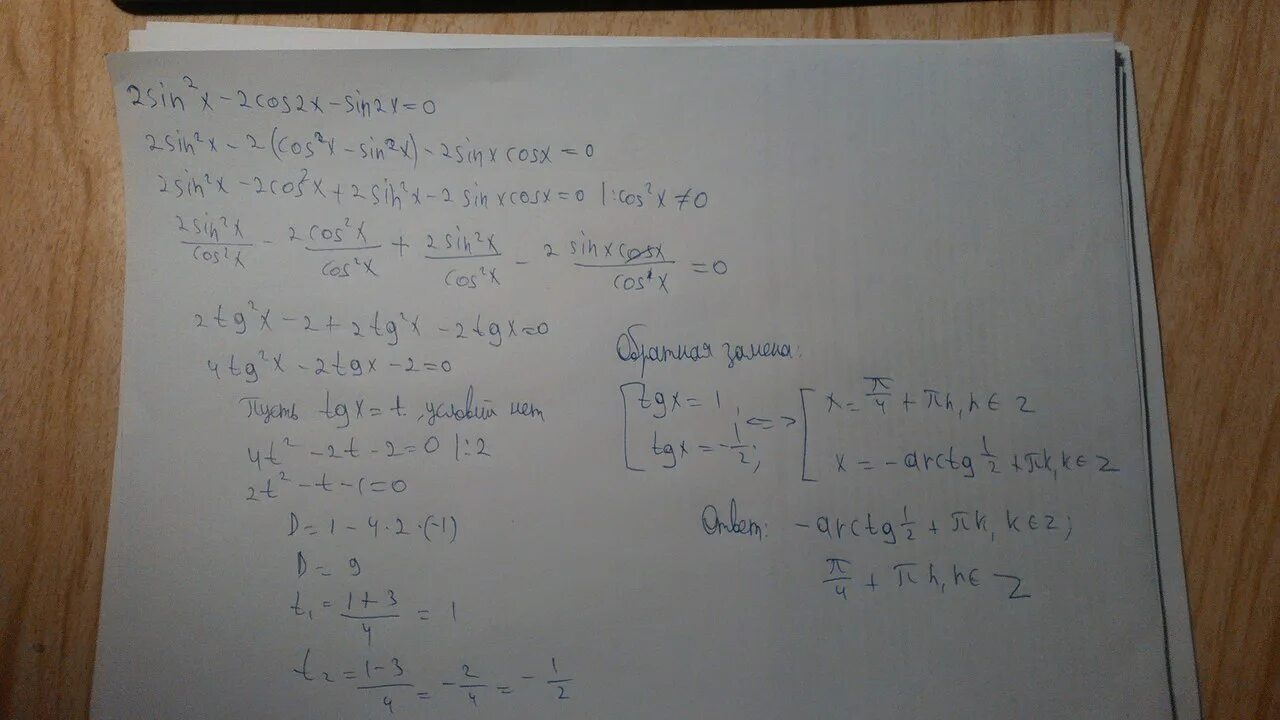 2sin²x - 2cos2x - sin2x = 0
2sin²x - 2(cos²x - sin²x) - 2sinx cosx = 0
2sin²x - 2cos²x + 2sin²x - 2sinxcosx = 0 |:cos²x ≠ 0
2sin²x/cos²x - 2cos²x/cos²x + 2sin²x/cos²x - 2 sinxcosx/cos²x = 0
2tg²x - 2 + 2tg²x - 2tgx = 0
4tg²x - 2tgx - 2 = 0
Пусть tgx = t, условий нет
4t² - 2t - 2 = 0 |:2
2t² - t - 1 = 0
D = 1 - 4·2·(-1)
D = 9
t₁ = (1+3)/4 = 1
t₂ = (1-3)/4 = -2/4 = -1/2
Обратная замена:
[tgx = 1, <=> [x = π/4 + πn, n ∈ Z
tgx = -1/2; x = -arctg 1/2 + πk, k ∈ Z
Ответ: -arctg 1/2 + πk, k ∈ Z;
π/4 + πn, n ∈ Z